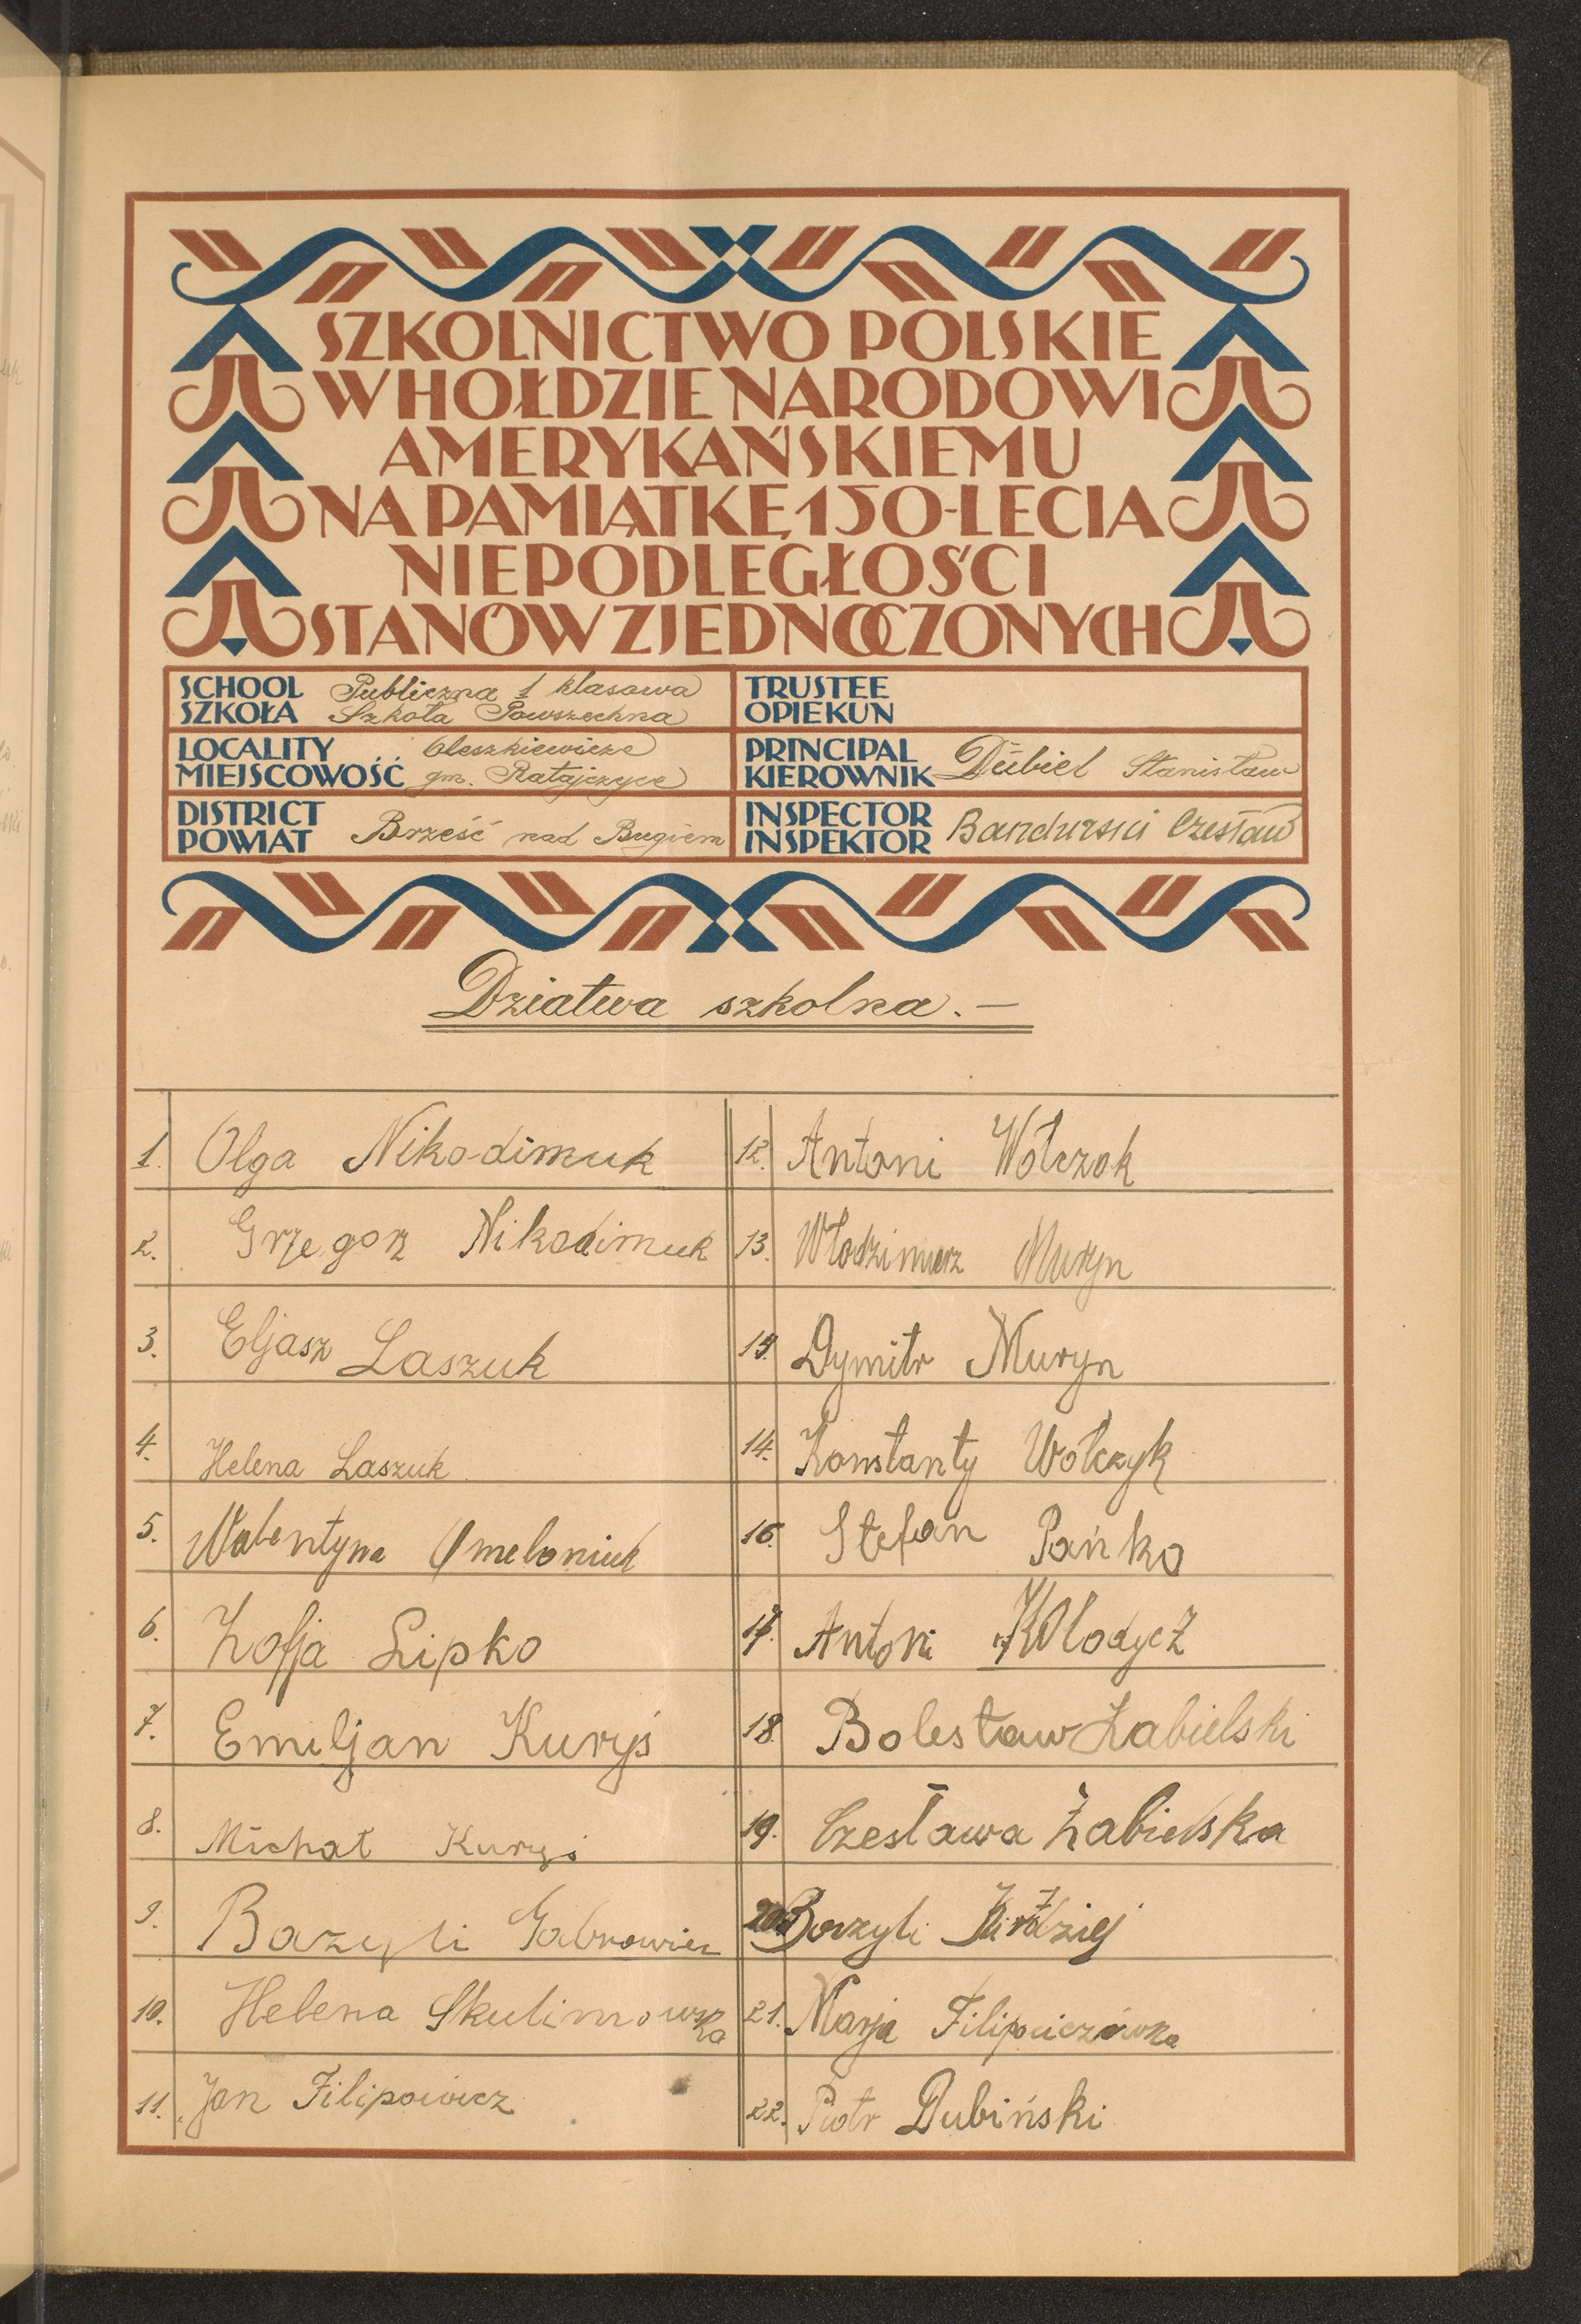 SZKOLNICTWO POLSKIE
W HOŁDZIE NARODOWI
AMERYKAŃSKIEMU
NA PAMIĄTKĘ 150-LECIA
NIEPODLEGŁOŚCI
STANÓW ZJEDNOCZONYCH
SCHOOL
SZKOŁA
Publiczna 1 klasowa
Szkoła Powszechna
TRUSTEE
OPIEKUN
LOCALITY
MIEJSCOWOŚĆ
Oleszkiewicze
gm. Ratajczyce
PRINCIPAL
KIEROWNIK
Dubiel Stanisław
DISTRICT
POWIAT
Brześć nad Bugiem
INSPECTOR
INSPEKTOR
Bandurski Czesław
Dziatwa szkolna.—
1. Olga Nikodimuk
2. Grzegorz Nikodimuk
3. Eljasz Laszuk
4. Helena Laszuk
5. Walentyna Omeloniuk
6. Zofja Lipko
7. Emiljan Kuryś
8. Michał Kuryś
9. Bazyli Gabrowiec
10. Helena Skulimowska
11. Jan Filipowicz
12. Antoni Wołczok
13. Włodzimierz Muryn
14. Dymitr Muryn
14. Konstanty Wołczyk
16. Stefan Pańko
17. Antoni Kołodycz
18. Bolesław Żabielski
19. Czesława Żabielska
20. Bazyli
21. Marja Filipowiczówna
22. Piotr Dubiński